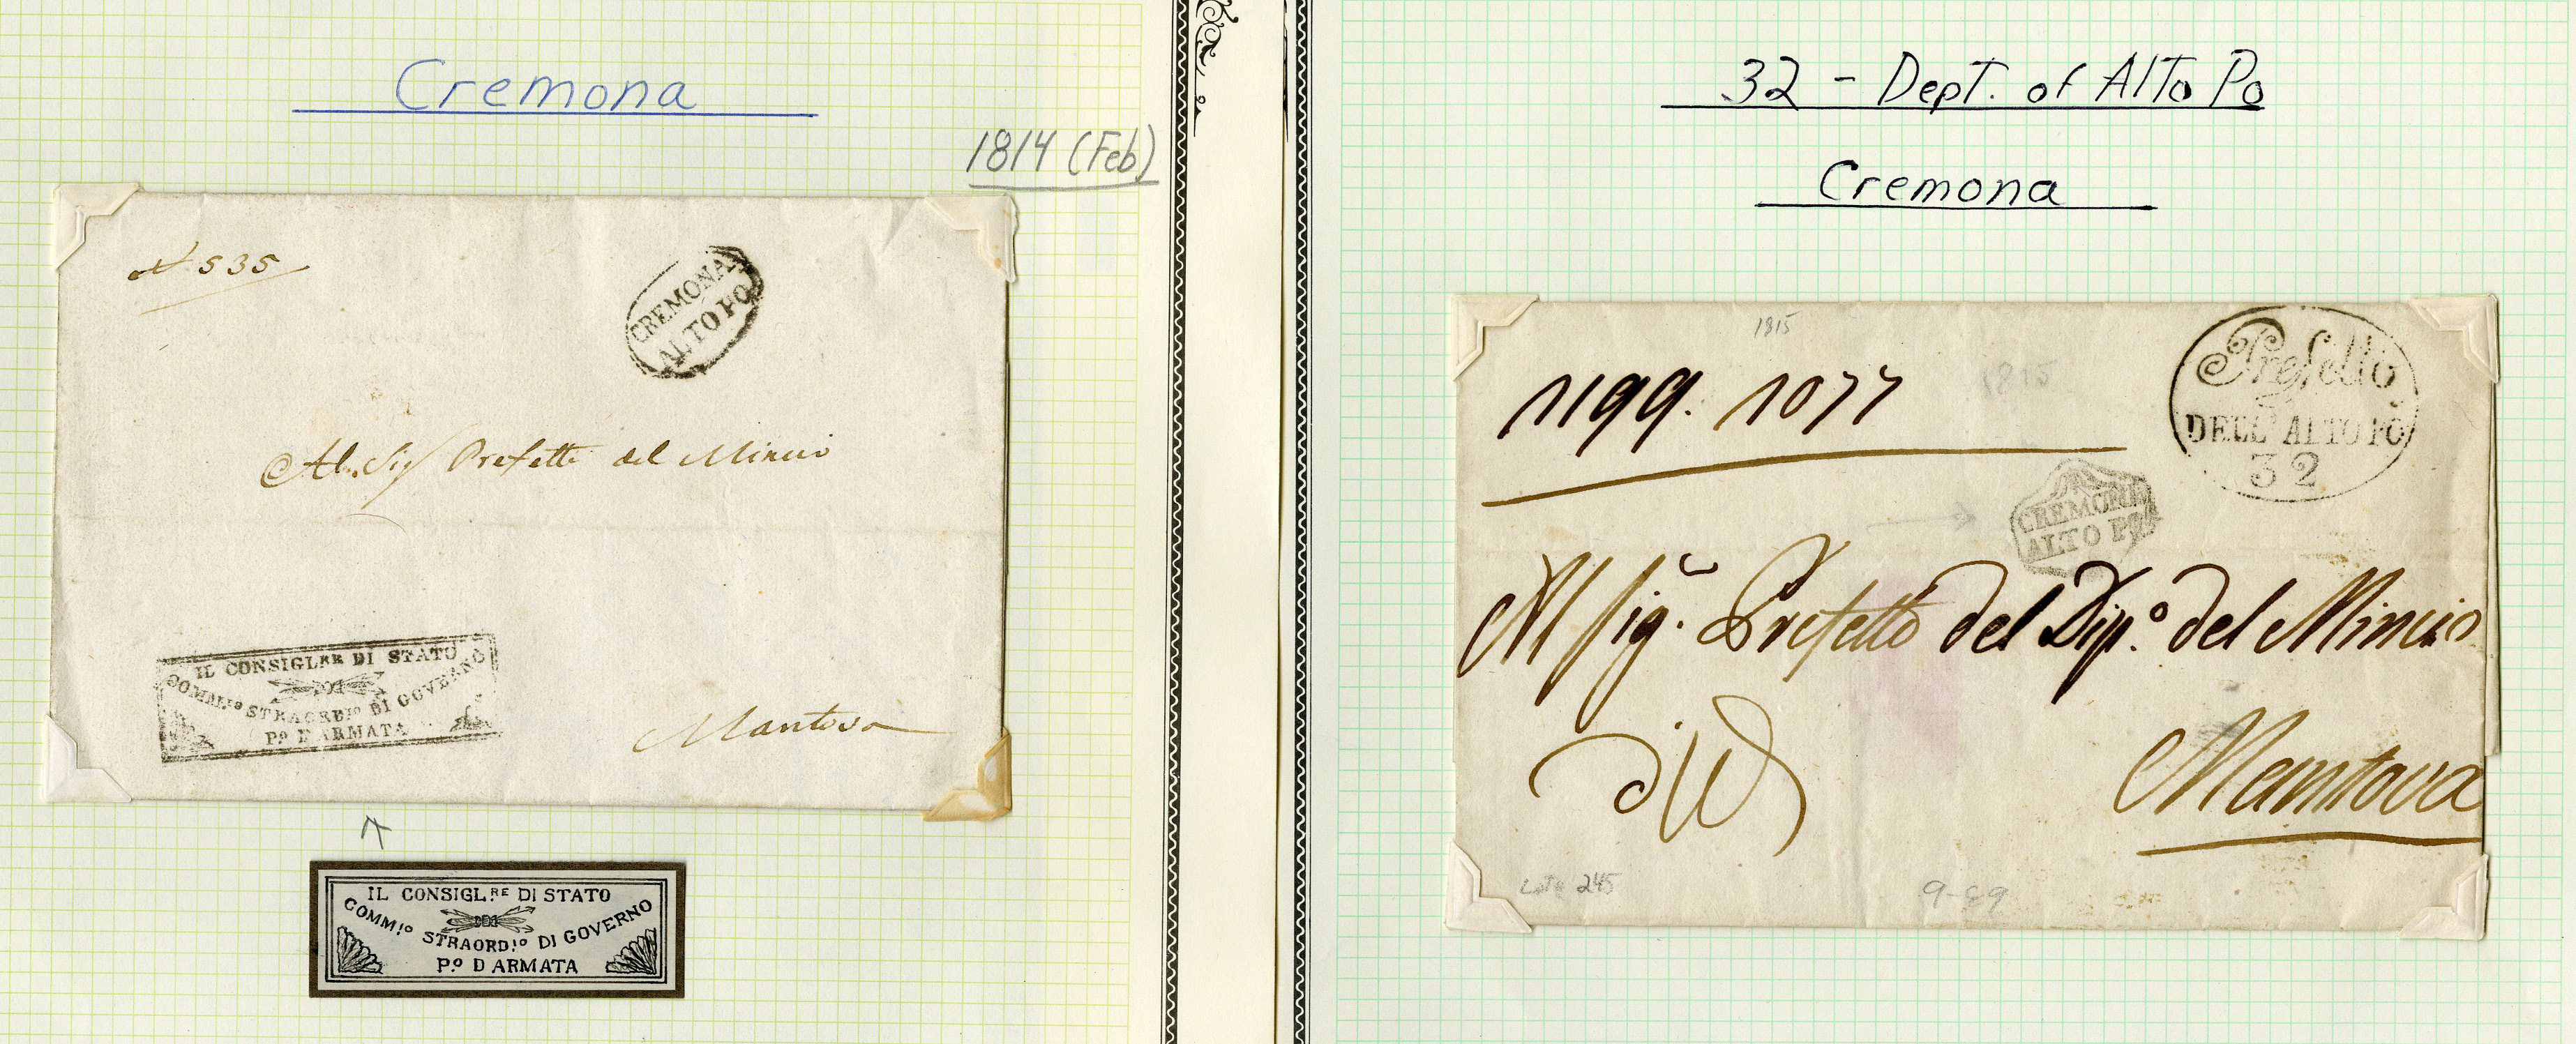 Cremona
1814 (Feb)
N 535
CREMONA
ALTO PO
Al Sig Prefetto del Mincio
IL CONSIGL.RE DI STATO
COMM.IO STRAORD.IO DI GOVERNO
P.O D ARMATA
Mantova
IL CONSIGL.RE DI STATO
COMM.IO STRAORD.IO DI GOVERNO
P.O D ARMATA
32 - Dept. of Alto Po
Cremona
1815
1815
1199. 1077
Prefetto
DELL' ALTO PO
32
CREMONA
ALTO PO
Al Sig.r Prefetto del Dip.o del Mincio
Mantova
245
9-89